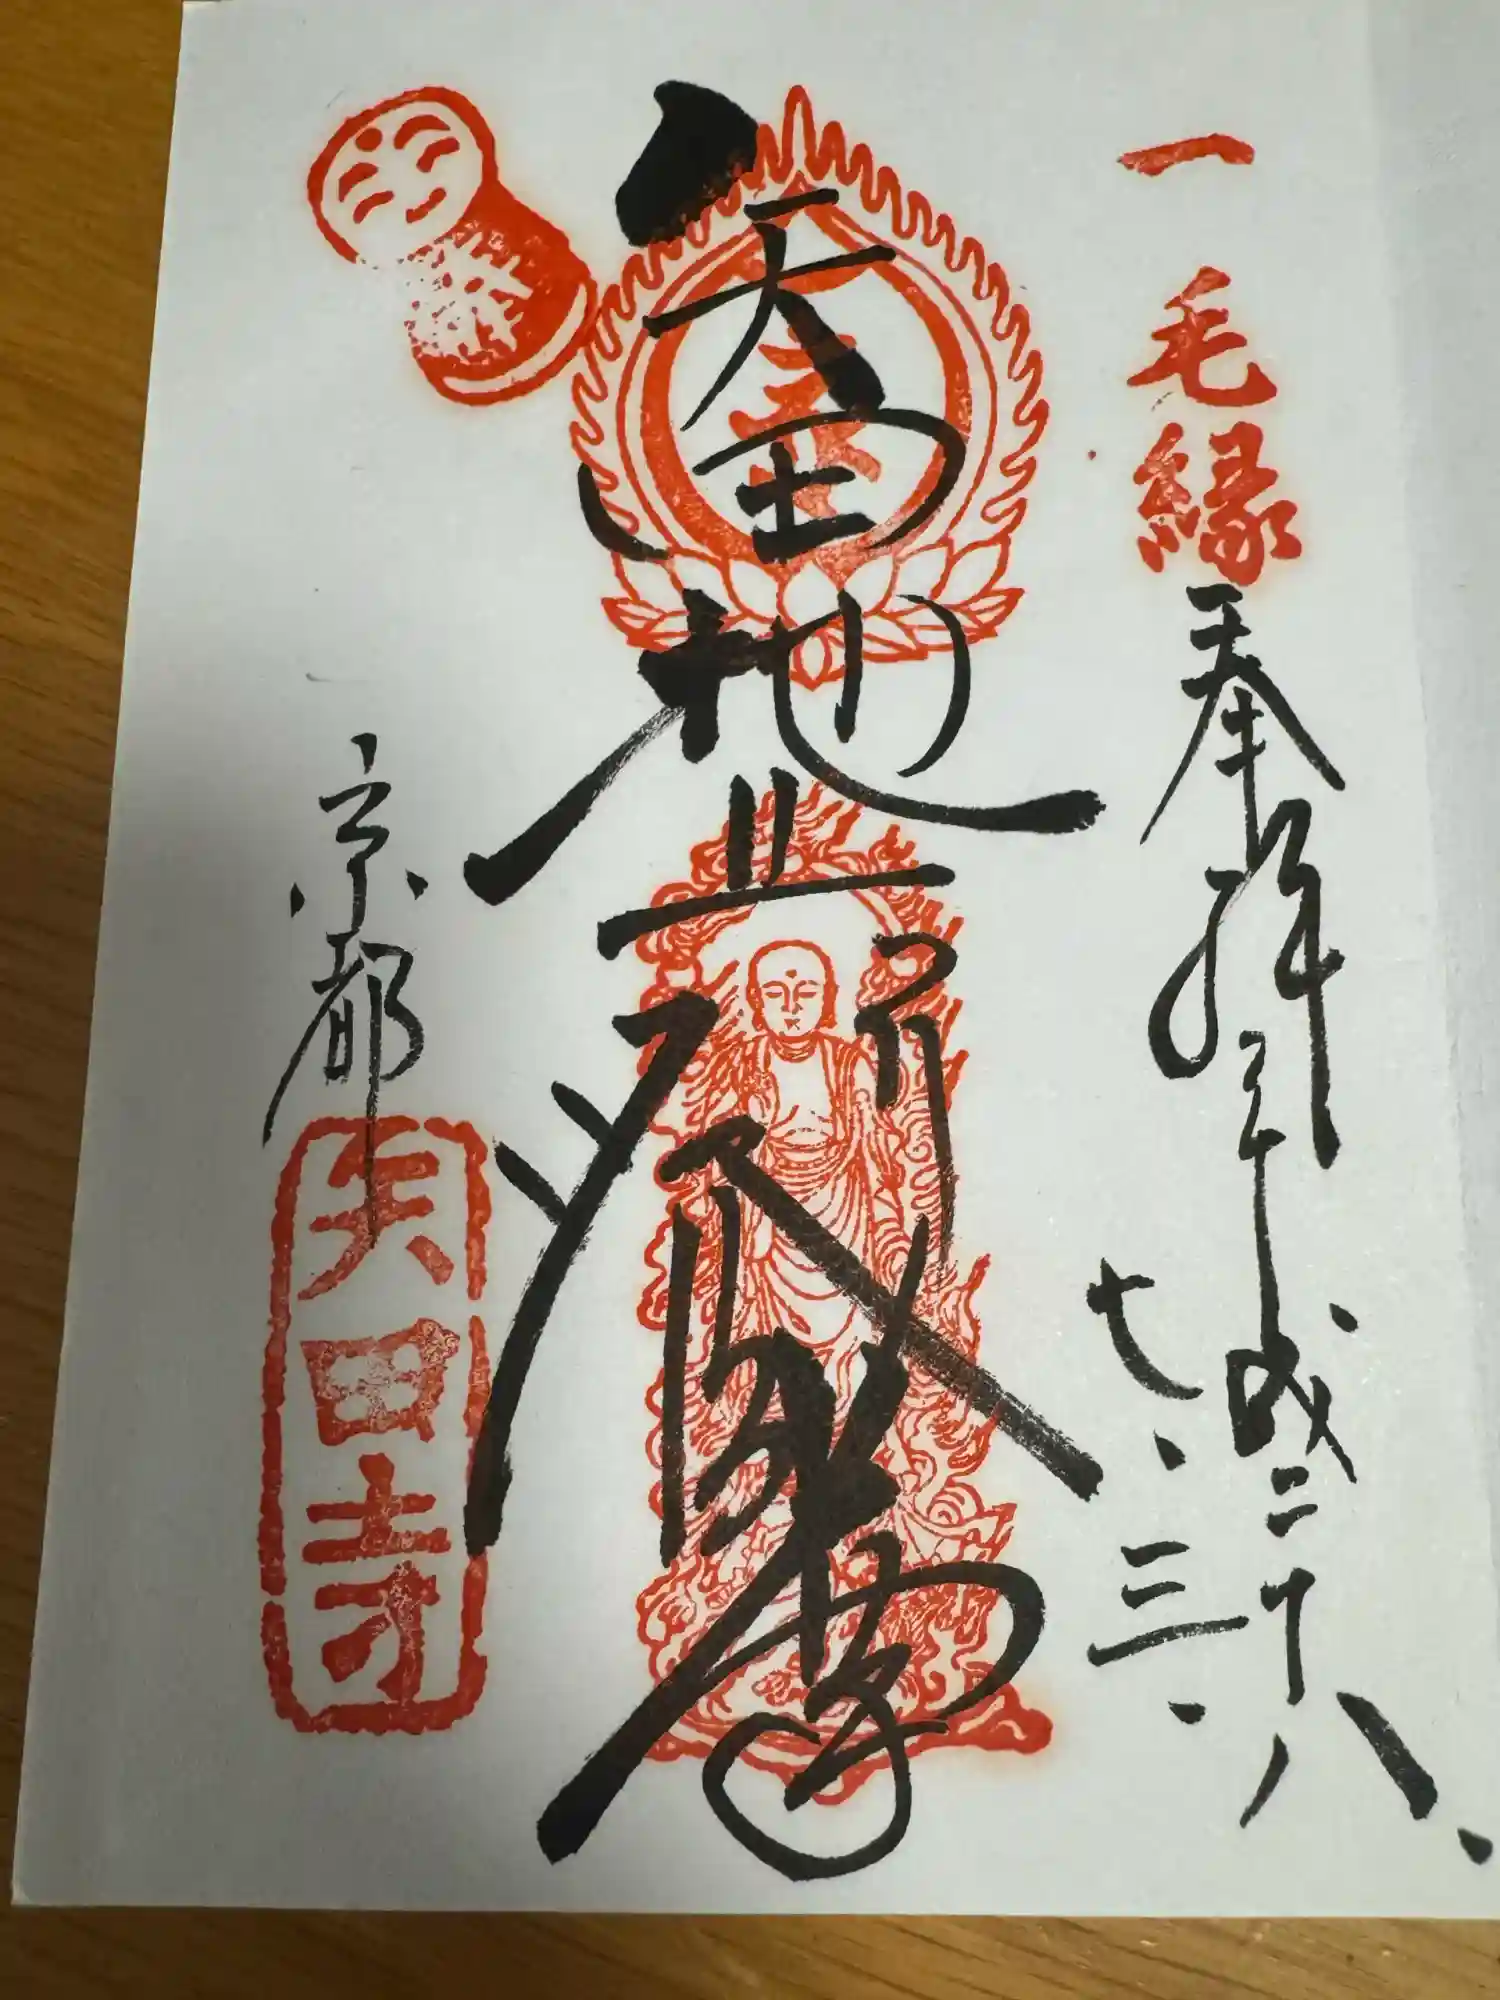 一毛縁
奉拝 平成二十八、
七、三、
矢田地蔵尊
京都
矢田寺